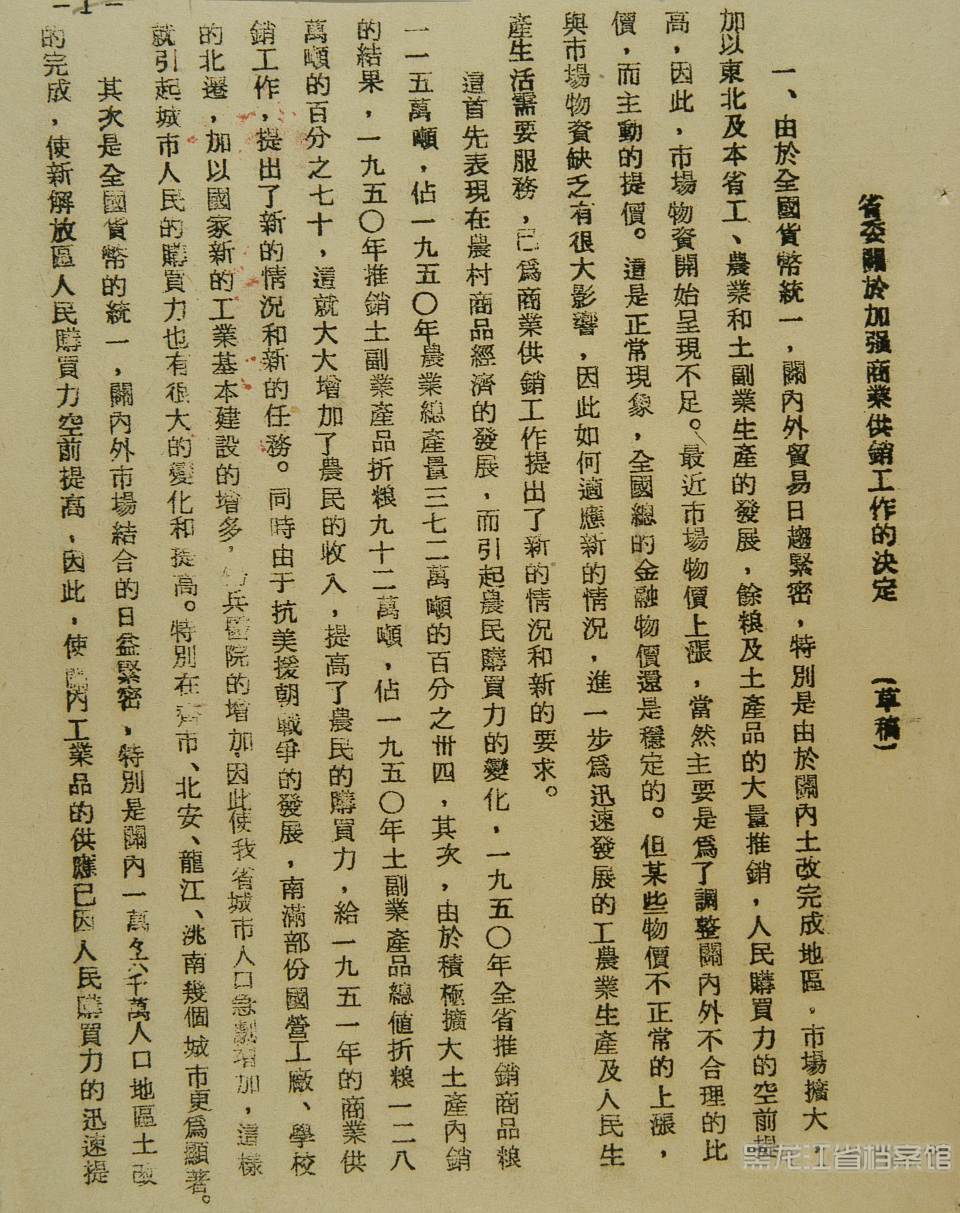 省委關於加强商業供銷工作的決定 (草稿)
一、由於全國貨幣統一，關內外貿易日趨緊密，特別是由於關內土改完成地區，市場擴大，
加以東北及本省工、農業和土副業生產的發展，餘粮及土產品的大量推銷，人民購買力的空前提
高，因此，市場物資開始呈現不足。最近市場物價上漲，當然主要是爲了調整關內外不合理的比
價，而主動的提價。這是正常現象，全國總的金融物價還是穩定的。但某些物價不正常的上漲，
與市場物資缺乏有很大影響，因此如何適應新的情況，進一步爲迅速發展的工農業生產及人民生
產生活需要服務，已爲商業供銷工作提出了新的情況和新的要求。
這首先表現在農村商品經濟的發展，而引起農民購買力的變化，一九五〇年全省推銷商品粮
一一五萬噸，佔一九五〇年農業總產量三七二萬噸的百分之卅四，其次，由於積極擴大土產內銷
的結果，一九五〇年推銷土副業產品折粮九十二萬噸，佔一九五〇年土副業產品總値折粮一二八
萬噸的百分之七十，這就大大增加了農民的收入，提高了農民的購買力，給一九五一年的商業供
銷工作，提出了新的情況和新的任務。同時由于抗美援朝戰爭的發展，南滿部份國營工廠、學校
的北遷，加以國家新的工業基本建設的增多，兵醫院的增加因此使我省城市人口急劇增加，這樣
就引起城市人民的購買力也有很大的變化和提高。特別在齊市、北安、龍江、洮南幾個城市更爲顯著。
其次是全國貨幣的統一，關內外市場結合的日益緊密，特別是關內一萬六千萬人口地區土改
的完成，使新解放區人民購買力空前提高，因此，使關內工業品的供應已因人民購買力的迅速提
-1-
黑龙江省档案馆